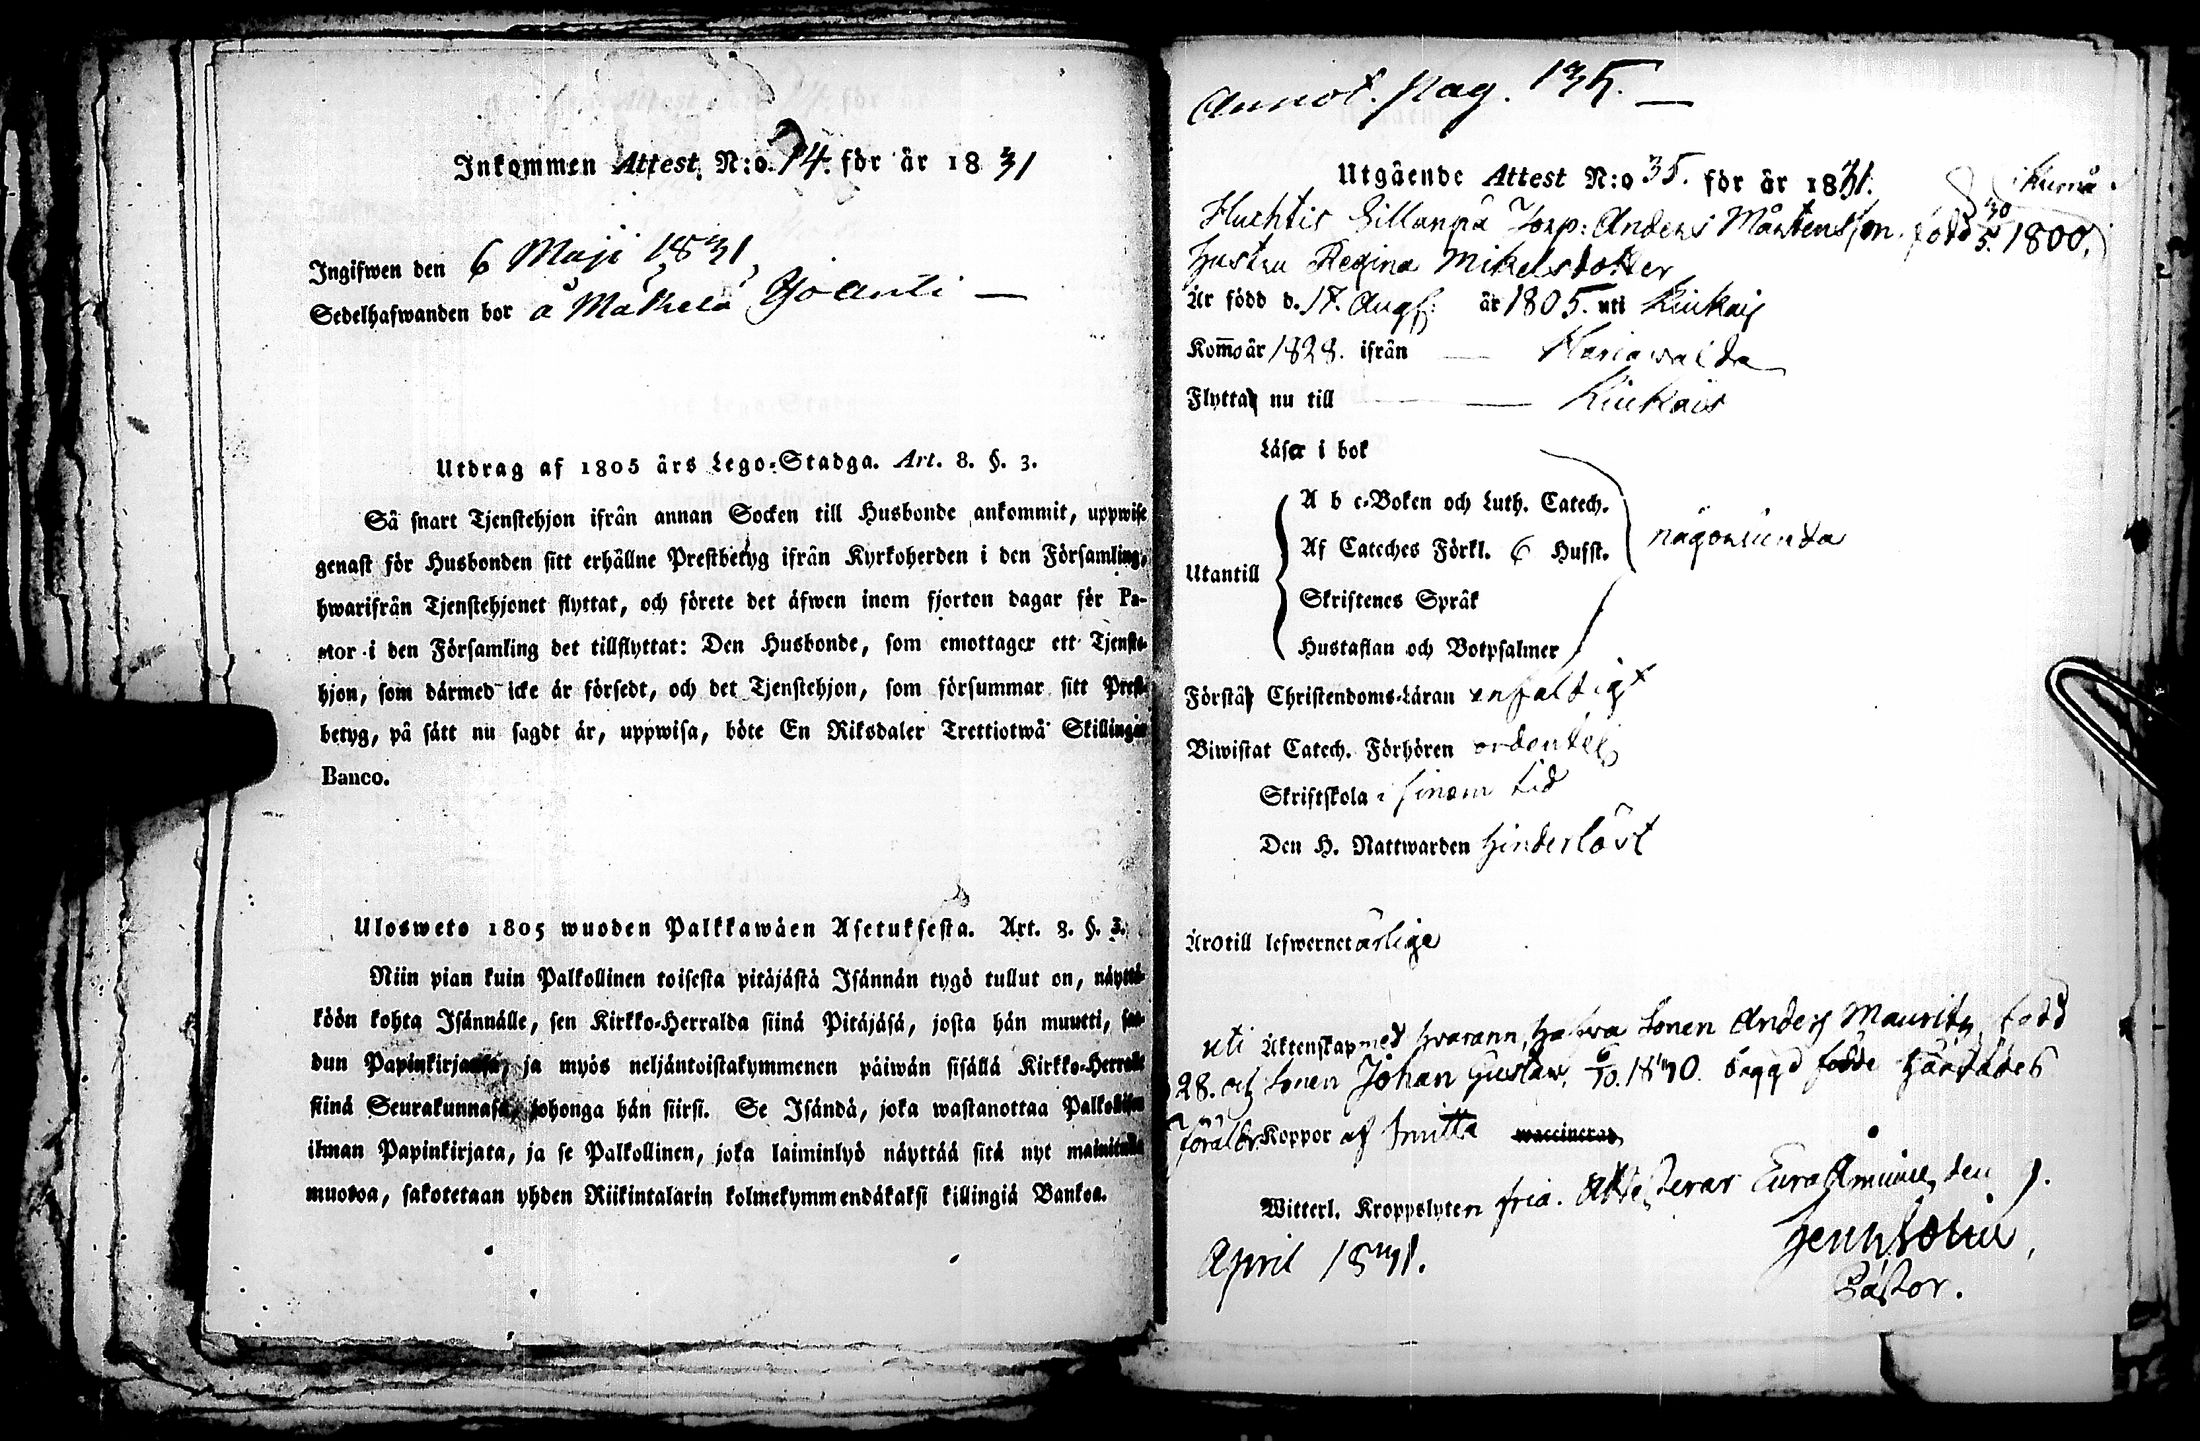 Inkommen Attest N:o 14. för år 1831
Ingifwen den 6 Maji 1831
Sedelhafwanden bor å Mäkelä Yoanti —
Utdrag af 1805 års Lego-Stadga. Art. 8. §. 3.
Så snart Tjenstehjon ifrån annan Socken till Husbonde ankommit, uppwise
genast för Husbonden sitt erhållne Prestbetyg ifrån Kyrkoherden i den Församling,
hwarifrån Tjenstehjonet flyttat, och förete det äfwen inom fjorton dagar för Pa-
stor i den Församling det tillflyttat: Den Husbonde, som emottager ett Tjenste-
hjon, som därmed icke är försedt, och det Tjenstehjon, som försummar sitt Prest-
betyg, på sätt nu sagdt är, uppwisa, böte En Riksdaler Trettiotwå Skillingar
Banco.
Ulosweto 1805 wuoden Palkkawäen Asetuksesta. Art. 8. §. 3.
Niin pian kuin Palkollinen toisesta pitäjästä Isännän tygö tullut on, näyttä-
köön kohta Isännälle, sen Kirkko-Herralda siinä Pitäjäsä, josta hän muutti, saa-
dun Papinkirjansa, ja myös neljäntoistakymmenen päiwän sisällä Kirkko-Herralle
siinä Seurakunnasa, johonga hän siirsi. Se Isändä, joka wastanottaa Palkollisen
ilman Papinkirjata, ja se Palkollinen, joka laiminlyö näyttää sitä nyt mainitulla
muotoa, sakotetaan yhden Riikintalarin kolmekymmendäkaksi killingiä Bankoa.
Annot. pag. 135. —
Utgående Attest N:o 35. för år 1831.
i Kumå
Huchtis Sillanpä Torp: Anders Mårtensson född 30/5. 1800.
Hustru Regina Mikelsdotter
Är född d. 17. Aug. år 1805. uti Kiukais
Kom̄o år 1828. ifrån — Hariavalda
Flytta nu till — Kiukais
Läser i bok
Utantill
A b c-Boken och Luth. Catech.
Af Cateches Förkl. 6 Hufst.
Skriftenes Språk
Hustaflan och Botpsalmer
någorlunda
Förstå Christendoms-Läran enfaldigt
Biwistat Catech. Förhören ordentel.
Skriftskola i sinom tid
Den H. Nattwarden hinderlöst
Äro till lefwernet ärlige
uti Äktenskap med hvarann, hafva Sonen Anders Mauritz, född
28. och Sonen Johan Gustav, 6/10. 1830. bägge födde
föräldr Koppor af Smitta waccinerad
Witterl. Kroppslyten fria. Attesterar Eura Åminne, den 9.
April 1831.
Pastor.